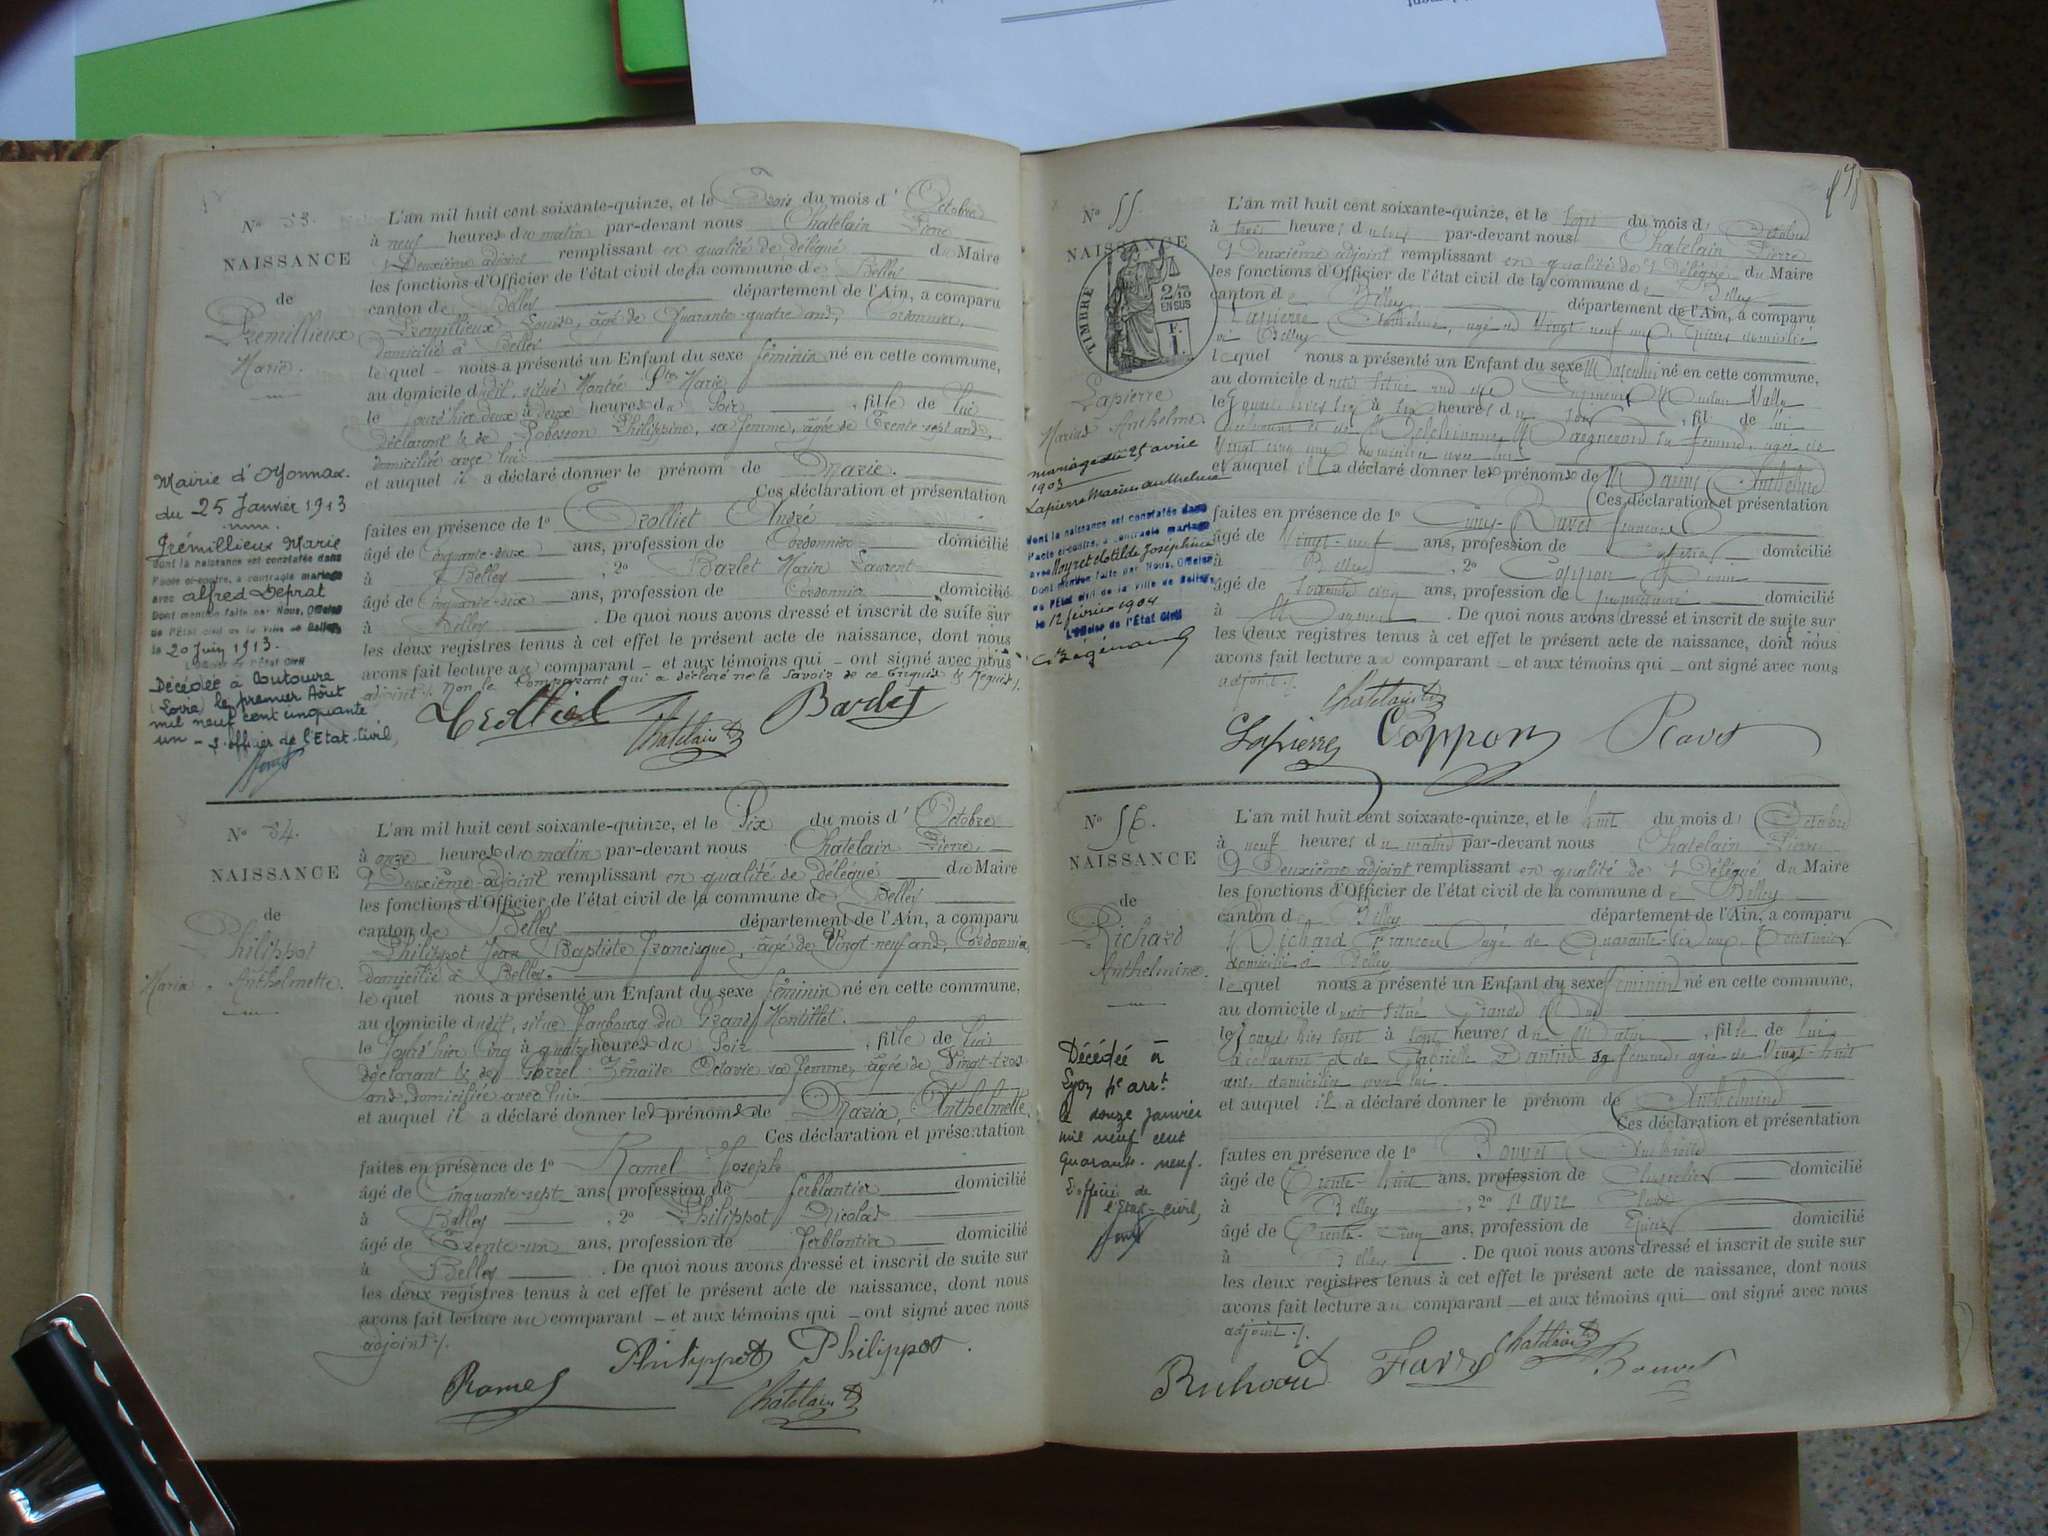 N° 53.
NAISSANCE
de
Premillieux
Marie.
Mairie d'Oyonnax.
du 25 Janvier 1913
Prémillieux Marie
dont la naissance est constatée dans
l'acte ci-contre, a contracté mariage
avec Alfred Deprat
Dont mention faite par Nous, Officier
de l'Etat civil de la Ville de Belley
le 20 Juin 1913.
L'Officier de l'Etat Civil
Décédée à Coutouvre
(Loire) le premier Août
mil neuf cent cinquante
un - L'officier de l'Etat-Civil,
L'an mil huit cent soixante-quinze, et le Trois du mois d'Octobre
à neuf heures du matin par-devant nous Chatelain Pierre
Deuxième adjoint remplissant en qualité de délégué du Maire
les fonctions d'Officier de l'état civil de la commune de Belley
canton de Belley département de l'Ain, a comparu
Premillieux Louis, âgé de Quarante-quatre ans, Cordonnier,
domicilié à Belley
lequel nous a présenté un Enfant du sexe féminin né en cette commune,
au domicile dudit, situé Montée Stes Marie
le jourd'hier deux à deux heures du Soir, fille de lui
déclarant & de Philippine, sa femme, âgée de Trente-sept ans,
domiciliée avec lui
et auquel il a déclaré donner le prénom de Marie.
Ces déclaration et présentation
faites en présence de 1° Trolliet André
âgé de Cinquante-deux ans, profession de Cordonnier domicilié
à Belley, 2° Bardet Marin Laurent
âgé de Cinquante-six ans, profession de Cordonnier domicilié
à Belley. De quoi nous avons dressé et inscrit de suite sur
les deux registres tenus à cet effet le présent acte de naissance, dont nous
avons fait lecture au comparant - et aux témoins qui - ont signé avec nous
adjoint. Non le Comparant qui a déclaré ne le savoir de ce enquis & requis
Trolliet Chatelain Bardet
N° 54.
NAISSANCE
de
Philippot
Maria Anthelmette.
L'an mil huit cent soixante-quinze, et le Six du mois d'Octobre
à onze heures du matin par-devant nous Chatelain Pierre
Deuxième adjoint remplissant en qualité de délégué du Maire
les fonctions d'Officier de l'état civil de la commune de Belley
canton de Belley département de l'Ain, a comparu
Philippot Jean Baptiste Francisque, âgé de Vingt-neuf ans, Cordonnier
domicilié à Belley
lequel nous a présenté un Enfant du sexe féminin né en cette commune,
au domicile dudit, situé Faubourg du Grand Montillet.
le jourd'hier Cinq à quatre heures du Soir, fille de lui
déclarant & de Zénaïde Octavie sa femme, âgée de Vingt-trois
ans, domiciliée avec lui
et auquel il a déclaré donner les prénoms de Maria Anthelmette.
Ces déclaration et présentation
faites en présence de 1° Ramel Joseph
âgé de Cinquante-sept ans, profession de ferblantier domicilié
à Belley, 2° Philippot Nicolas
âgé de Trente-un ans, profession de ferblantier domicilié
à Belley. De quoi nous avons dressé et inscrit de suite sur
les deux registres tenus à cet effet le présent acte de naissance, dont nous
avons fait lecture au comparant - et aux témoins qui - ont signé avec nous
adjoint.
Ramel Philippot Philippot
Chatelain
N° 55.
NAISSANCE
TIMBRE
2/10
EN SUS
Lapierre
Marius Anthelme.
mariage du 25 avril
1903
Lapierre Marius Anthelme
dont la naissance est constatée dans
l'acte ci-contre, a contracté mariage
avec Clotilde Joséphine
Dont mention faite par Nous, Officier
de l'Etat civil de la Ville de Belley,
le 12 février 1904
L'Officier de l'Etat Civil
L'an mil huit cent soixante-quinze, et le Sept du mois d'Octobre
à trois heures du soir par-devant nous Chatelain Pierre
Deuxième adjoint remplissant en qualité de Délégué du Maire
les fonctions d'Officier de l'état civil de la commune de Belley
canton de Belley département de l'Ain, a comparu
Lapierre Anthelme, âgé de Vingt-neuf ans, Epicier domicilié
à Belley
lequel nous a présenté un Enfant du sexe Masculin né en cette commune,
au domicile dudit situé rue
le jourd'hier six à six heures du soir, fils de lui
déclarant et de sa femme, âgée de
Vingt cinq ans domiciliée avec lui
et auquel il a déclaré donner les prénoms de Marius Anthelme
Ces déclaration et présentation
faites en présence de 1° Ravet
âgé de Vingt-neuf ans, profession de domicilié
à Belley, 2° Coppon
âgé de Soixante cinq ans, profession de propriétaire domicilié
à. De quoi nous avons dressé et inscrit de suite sur
les deux registres tenus à cet effet le présent acte de naissance, dont nous
avons fait lecture au comparant - et aux témoins qui - ont signé avec nous
adjoint.
Chatelain
Lapierre Coppon Ravet
N° 56.
NAISSANCE
de
Richard
Anthelmine.
Décédée à
Lyon 4e arrt
le douze janvier
mil neuf cent
quarante-neuf.
L'officier de
l'Etat-civil,
L'an mil huit cent soixante-quinze, et le huit du mois d'Octobre
à neuf heures du matin par-devant nous Chatelain Pierre
Deuxième adjoint remplissant en qualité de Délégué du Maire
les fonctions d'Officier de l'état civil de la commune de Belley
canton de Belley département de l'Ain, a comparu
Richard François âgé de Quarante-six ans,
domicilié à Belley
lequel nous a présenté un Enfant du sexe féminin né en cette commune,
au domicile dudit situé Grande Rue
le jourd'hier sept à sept heures du Matin, fille de lui
déclarant & de Gabrielle sa femme, âgée de Vingt-huit
ans, domiciliée avec lui
et auquel il a déclaré donner le prénom de Anthelmine
Ces déclaration et présentation
faites en présence de 1° Bouvet
âgé de Trente-huit ans, profession de domicilié
à Belley, 2° Favre Claude
âgé de Trente-cinq ans, profession de domicilié
à Belley. De quoi nous avons dressé et inscrit de suite sur
les deux registres tenus à cet effet le présent acte de naissance, dont nous
avons fait lecture au comparant - et aux témoins qui - ont signé avec nous
adjoint.
Richard Favre Chatelain Bouvet